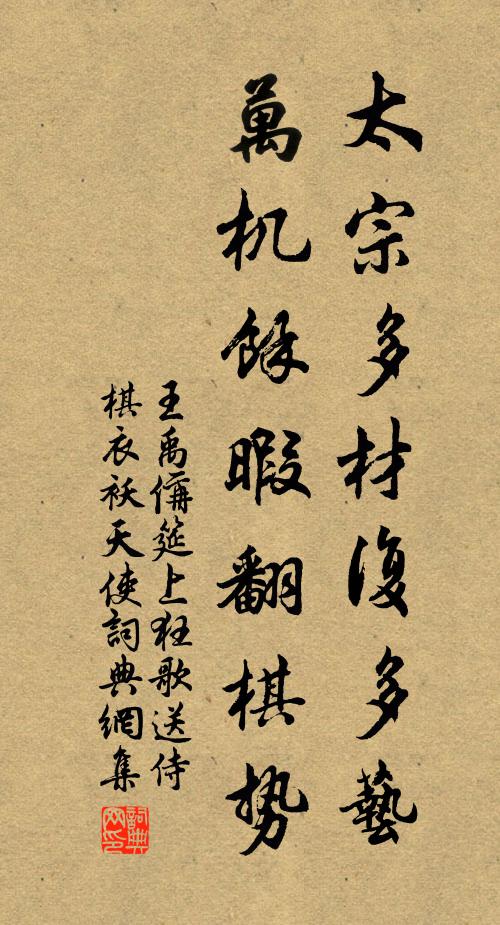 太宗多材復多藝
萬机餘暇翻棋勢
王禹偁筵上狂歌送侍
棋衣袄天使詞典網集
詞典
网印